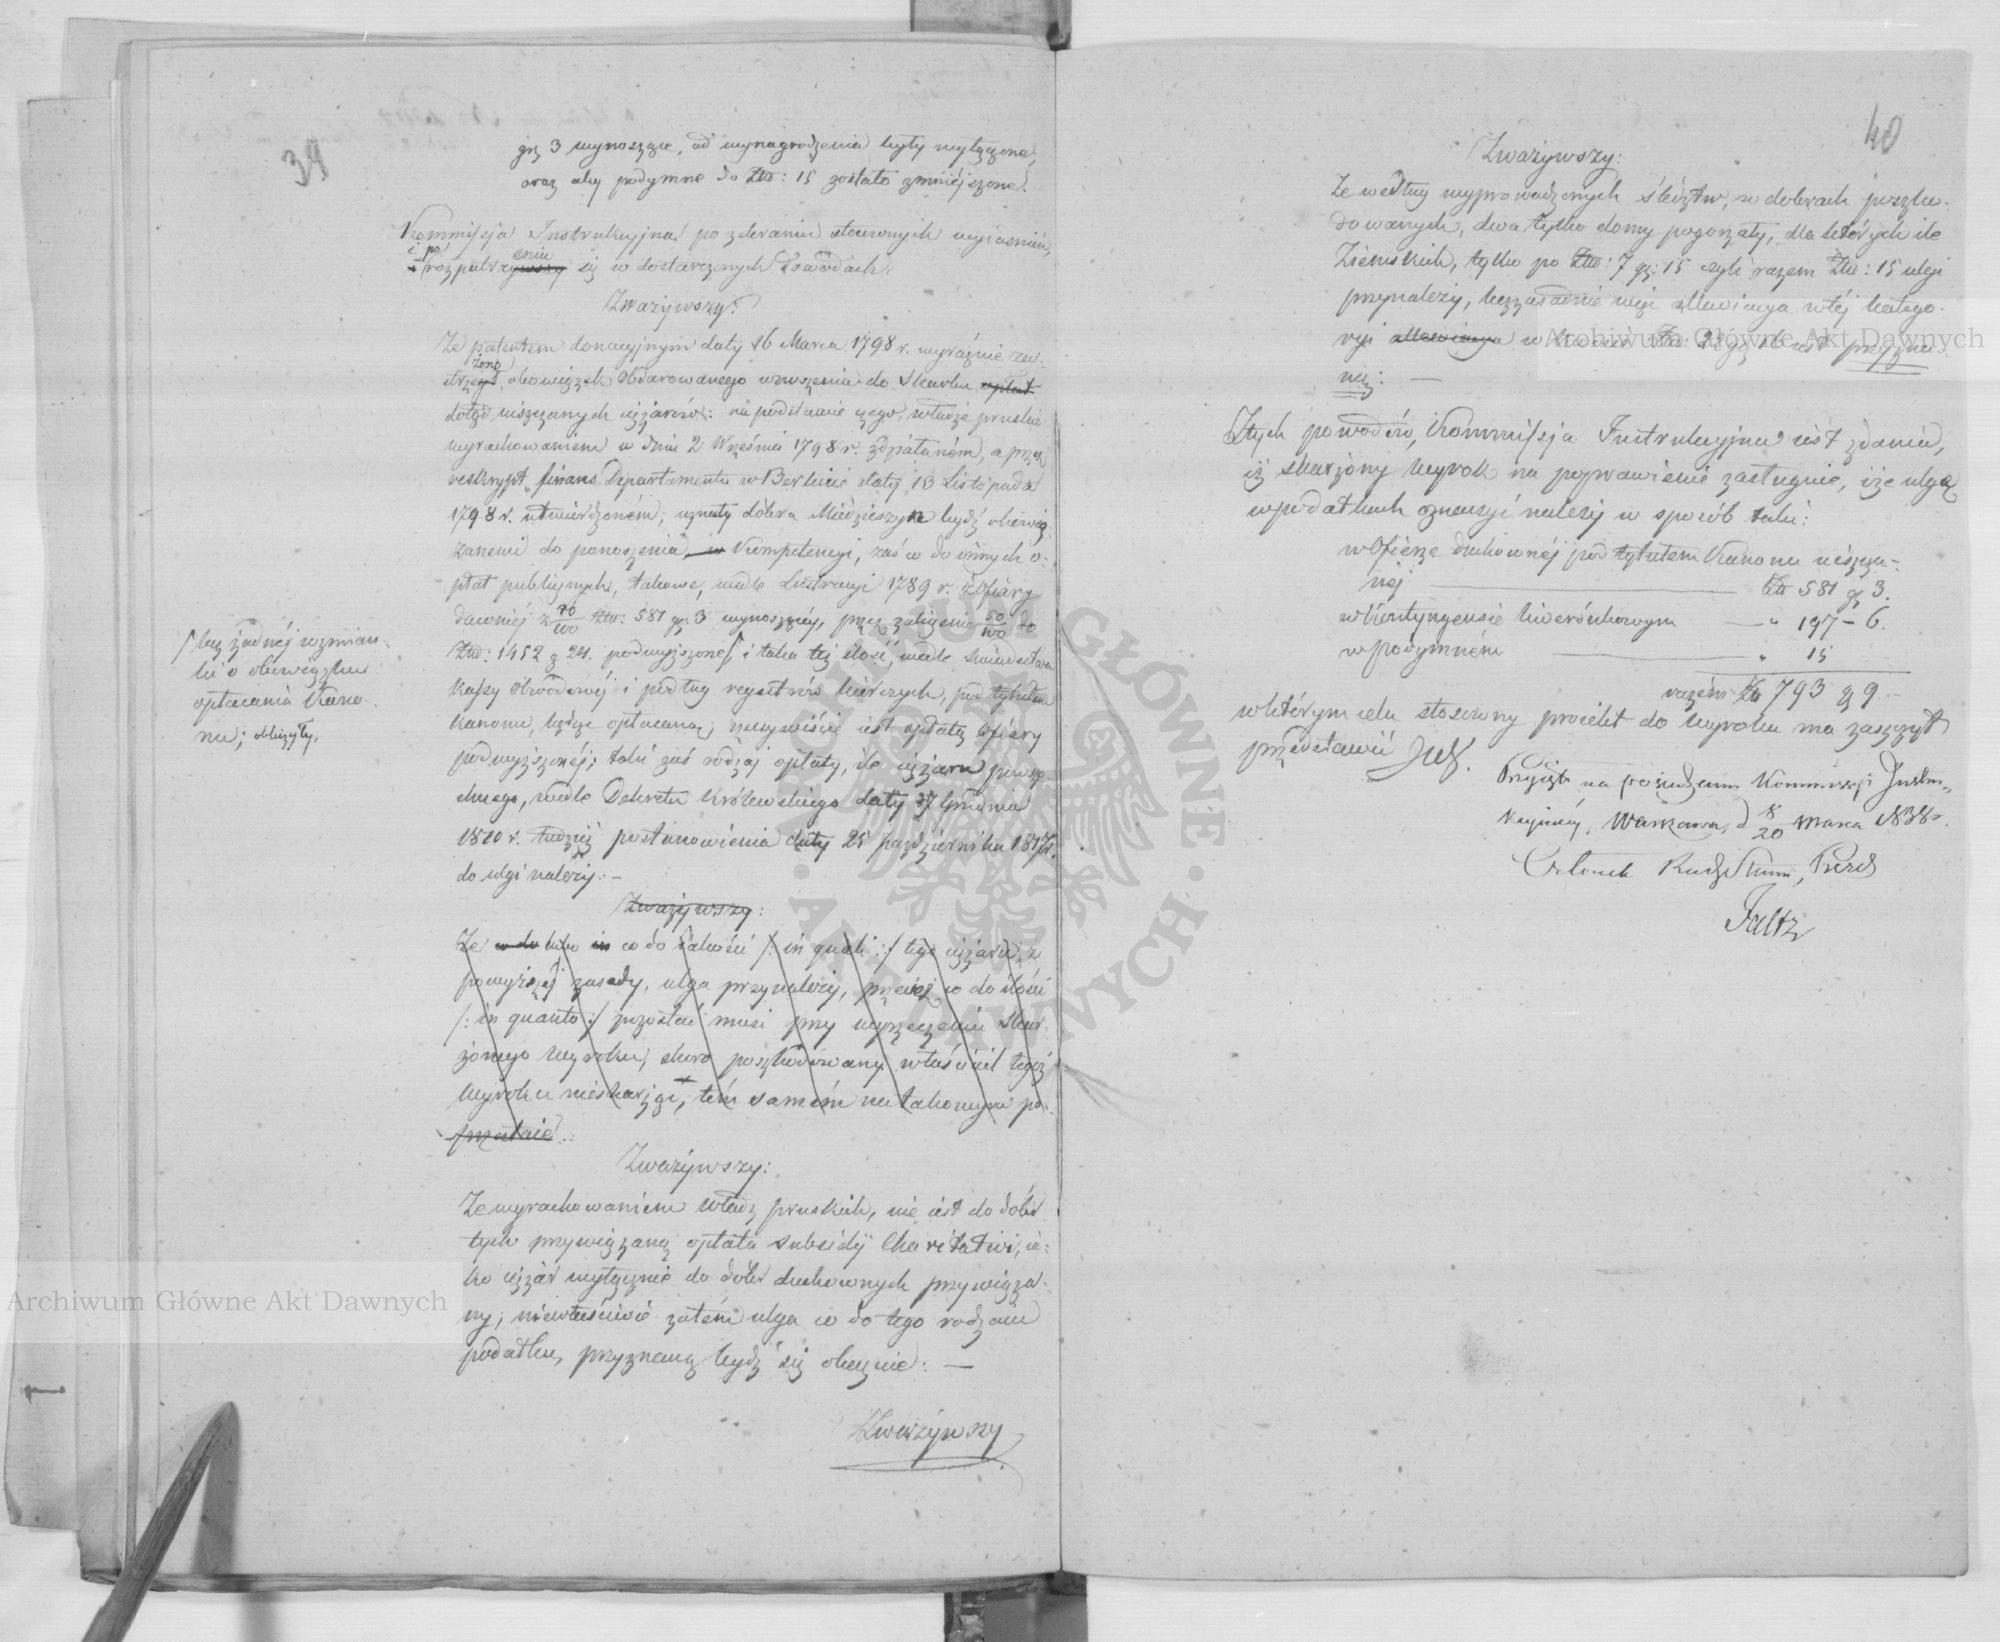 39
grz 3 wynoszące, od wynagrodzenia były wyłączone,
oraz aby podymne do Złłr: 15 zostało zmniejszone.
Kommissja Instrukcyjna po zebraniu stosownych wyiasnień,
i po rozpatrzeniu się w dostarczonych dowodach:
Zważywszy:
Że patentem donacyjnym daty 16 Marca 1798 r. wyraźnie zas-
trzeżono, obowiązek obdarowanego wnoszenia do Skarbu opłat
dotąd uiszczanych ciężarów: na podstawie czego, władze pruskie
wyrachowaniem w dniu 2 Września 1798 r. zdziałaném, a przez
reskrypt finans Departamentu w Berlinie daty 13 Listopada
1798 r. utwierdzoném; uznały dobra Miedzieszyn bydź obowią-
zanemi do ponoszenia Kompetencyi, zaś co do innych o-
płat publicznych, takowe, wedle Lustracyi 1789 r. z Ofiary
dawniéj z 20/100 Złłr: 581 gr: 3 wynoszącéj, przez zaliczenie 50/100 do
Złłr: 1452 g 24. podwyższone, i taka też ilość, wedle świadectwa
kassy Obwodowéj i podług regestrów bierczych, pod tytułem
kanonu, będąc opłacaną, rzeczywiście iest opłatą Ofiary
podwyższonéj; taki zaś rodzaj opłaty, ile ciężaru powsze-
chnego, wedle Dekretu Królewskiego daty 27 Grudnia
1810 r. tudzież postanowienia daty 25 października 1817 r.
do ulgi należy: —
/ bez żadnéj wzmian-
ki o obowiązku
opłacania Kano-
nu; obliczyły,
Zważywszy:
Że lubo co do iakości /: in quali :/ tego ciężaru, z
powyższéj zasady, ulga przynależy, przecież co do ilości
/: in quanto :/ pozostać musi przy wyrzeczeniu skar-
żonego Wyroku, skoro poszkodowany właściciel tegoż
Wyroku nieskarżąc, tém samém na takowym po-
przestaie.
Zważywszy:
Że wyrachowaniem władz pruskich, nie iest do dóbr
tych przywiązaną opłata subsidij Charitativi, ia-
ko ciężar wyłącznie do dóbr duchownych przywiąza-
ny; niewłaściwie zatém ulga co do tego rodzaiu
podatku, przyznaną bydź się okazuie: —
Zważywszy
40
Zważywszy:
Że według wyprowadzonych śledztw, w dobrach poszko-
dowanych, dwa tylko domy pogorzały, dla których ile
Ziemskich, tylko po Złłr: 7 gr: 15 czyli razem Złłr: 15 ulgi
przynależy, bezzasadnie więc allewiacya w téj katego-
ryi allewiacya w kwocie Złłr: 22 gr 16 iest przyzna-
ną: —
Z tych powodów, Kommissja Instrukcyjna iest zdania,
iż skarżony Wyrok na poprawienie zasługuie, i że ulgę
w podatkach oznaczyć należy w sposób taki:
w Ofierze duchownéj pod tytułem Kanonu uiszcza-
néj — Złłr 581 gr 3.
w Kontyngensie liwerunkowym — " 197 – 6.
w podymném — " 15
razém Złłr 793 gr 9 –
w którym celu stosowny proiekt do Wyroku ma zaszczyt
przedstawić
Przyjęto na posiedzeniu Kommissyi Instru-
kcyjnéj, Warszawa, d 8/20 Marca 1838 r.
Członek Rady Stanu, Prezes
Faltz
Archiwum Główne Akt Dawnych
Archiwum Główne Akt Dawnych
ARCHIWUM GŁÓWNE AKT DAWNYCH